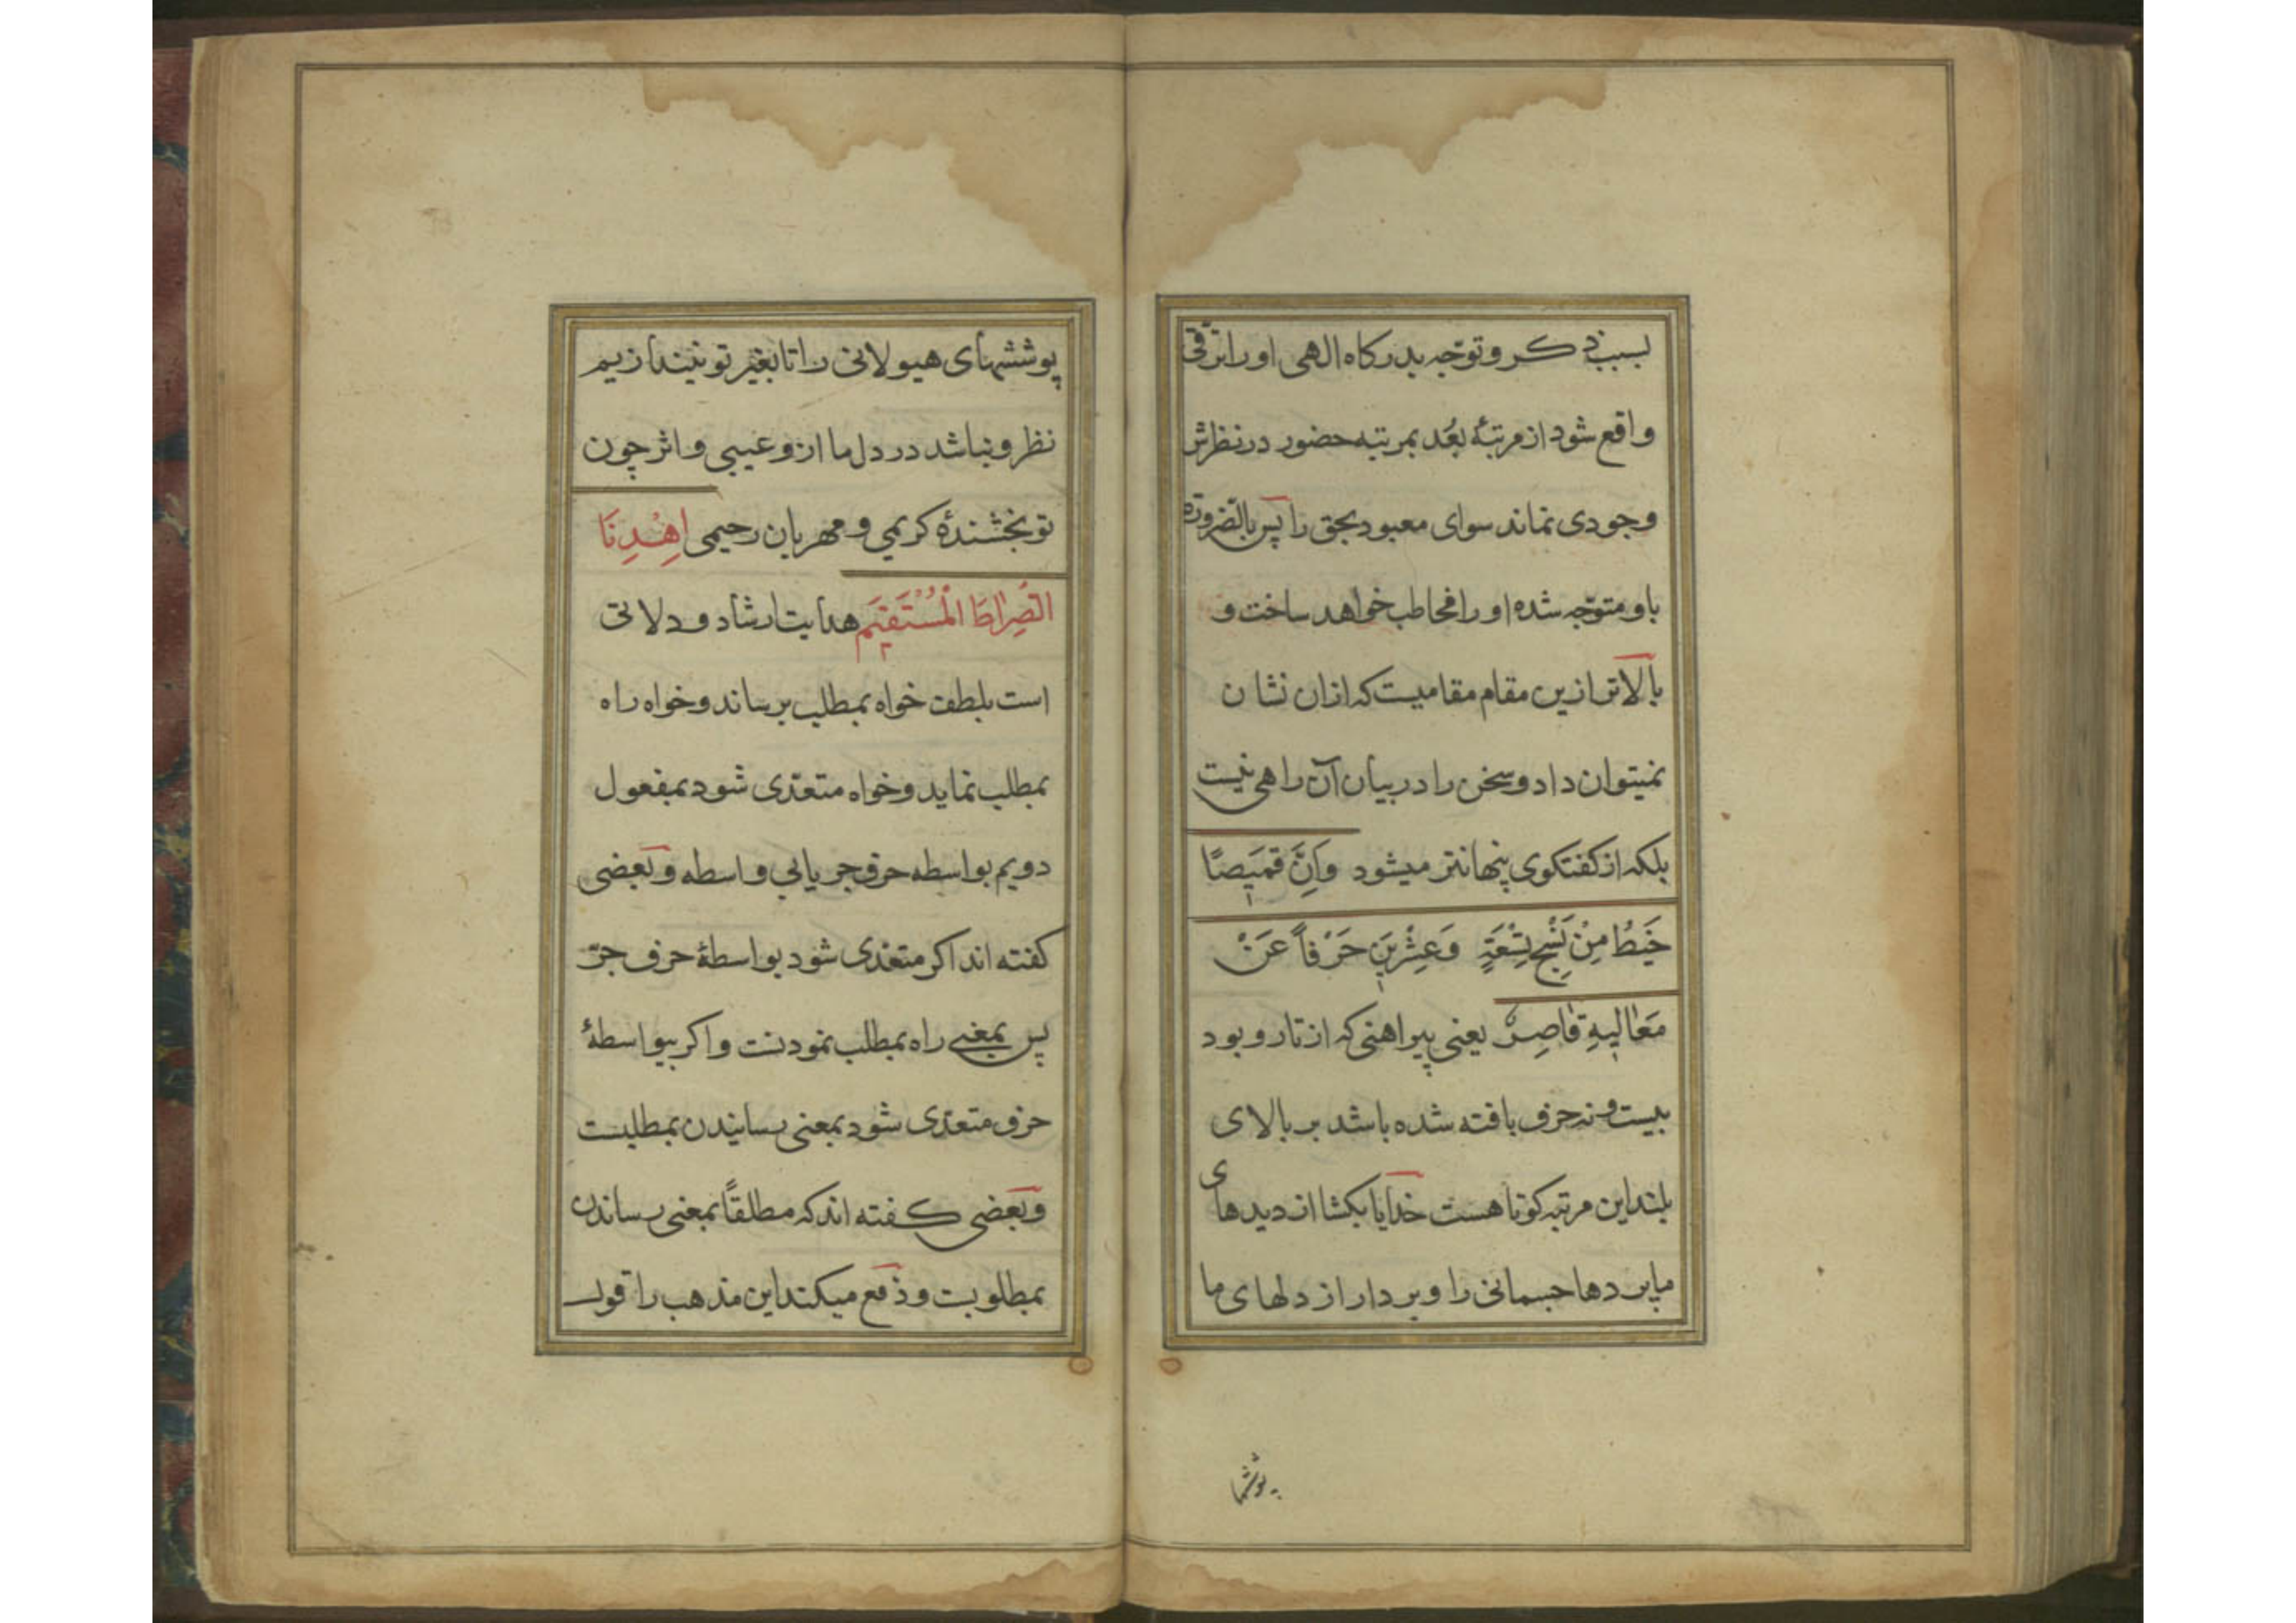 بسبب ذکر و توجّه بدرکاه الهی او را ترقّی
واقع شود از مرتبهٔ بُعد بمرتبه حضور در نظرش
وجودی نماند سوای معبود بحق را پس بالضرورة
باو متوجّه شده او را مخاطب خواهد ساخت و
بالاتر ازین مقام مقامیست که ازان نشان
نمیتوان داد و سخن را در بیان آن راهی نیست
بلکه از کفتکوی پنهانتر میشود وَاِنَّ قَمیَصًا
خَیطُ مِنْ نَسْجِ تِسْعَةٍ وَعِشْرینَ حَرْفاً عَنْ
مَعٰالیهِ قٰاصِرٌ یعنی پیراهنی که از تار و بود
بیست و نه حرف بافته شده باشد بر بالای
بلند این مرتبه کوتا هست خدایا بکشا از دیدهای
ما پردها جسمانی را و بردار از دلهای ما
پوششها
پوششهای هیولانی را تا بغیر تو نیندازیم
نظر و نباشد در دل ما از و عیبی و اثر چون
تو بخشندهٔ کریمی و مهربان رحیمی اِهْدِنَا
الصِّرٰاطَ الْمُسْتَقیَم هدایت ارشاد و دلالتی
است بلطف خواه بمطلب برساند و خواه راه
بمطلب نماید و خواه متعدّی شود بمفعول
دویم بواسطه حرف جر یا بی واسطه و بعضی
کفته اند اکر متعدی شود بواسطهٔ حرف جرّ
پس بمعنی راه بمطلب نمودنت و اکر بیواسطهٔ
حرف متعدّی شود بمعنی رسانیدن بمطلبست
و بعضی کفته اند که مطلقاً بمعنی رساندن
بمطلوبت و دفع میکند این مذهب را قول